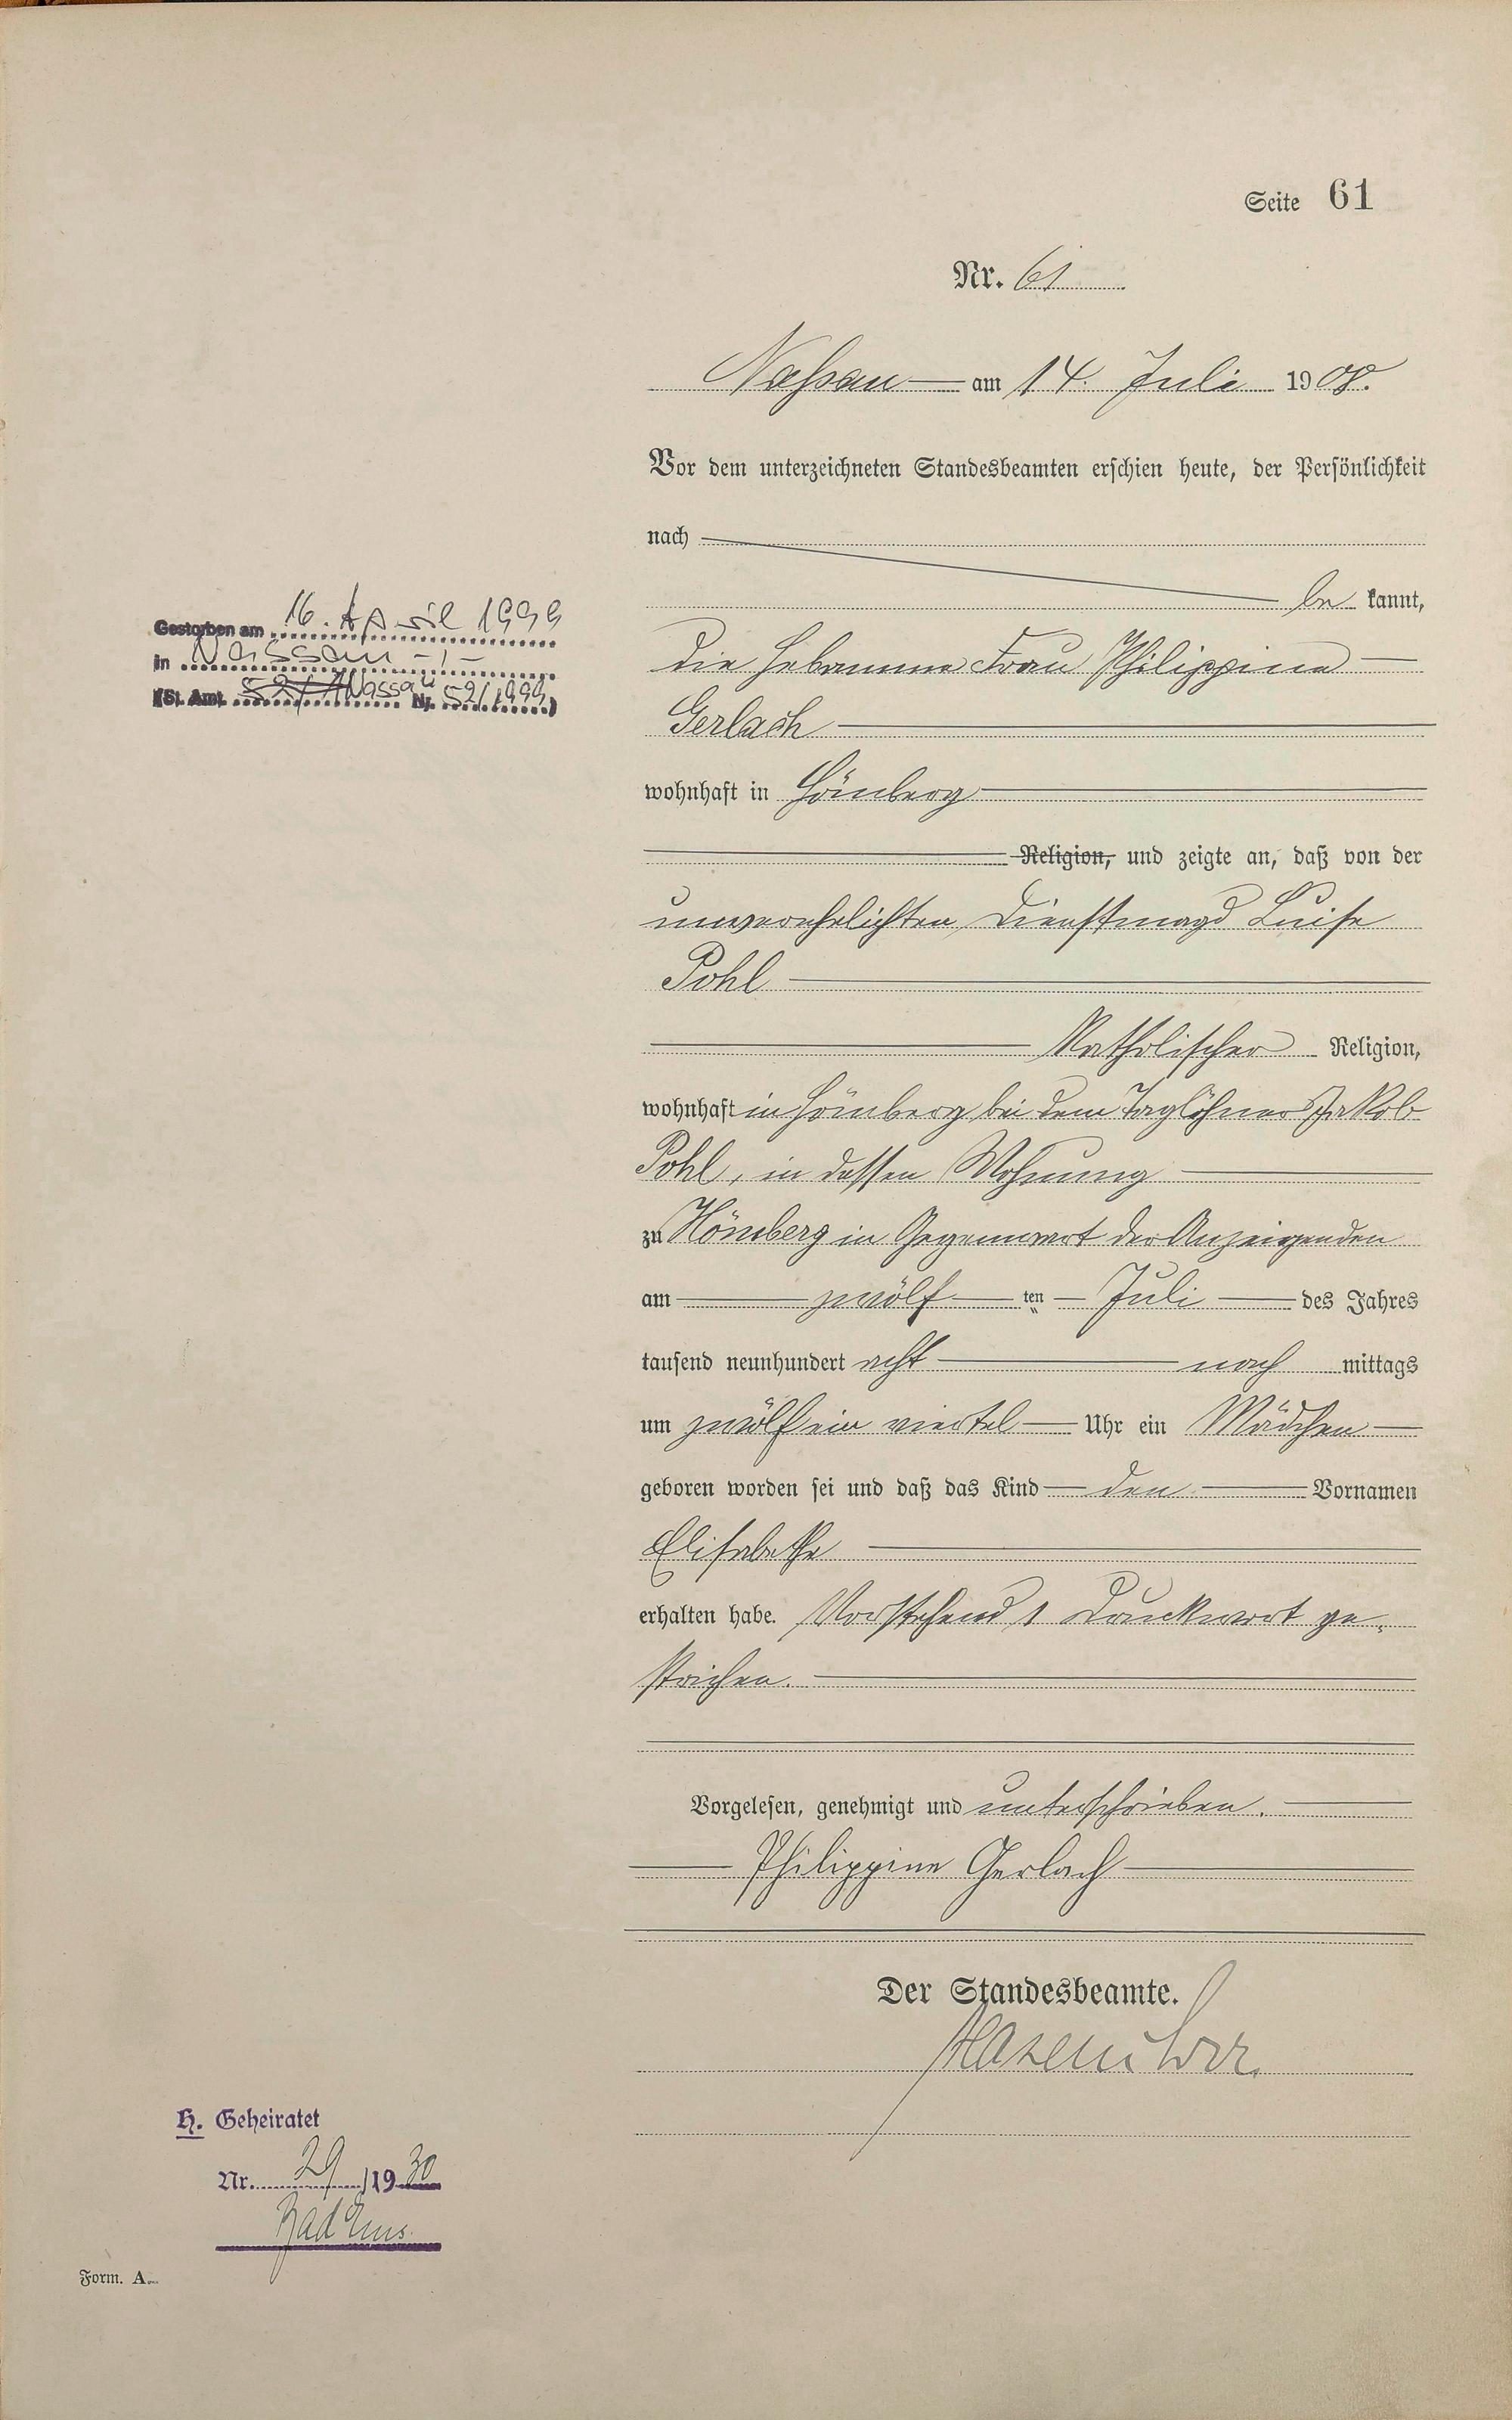 Seite 61
Nr. 61
Nassau am 14. Juli 1908.
Vor dem unterzeichneten Standesbeamten erschien heute, der Persönlichkeit
nach
be kannt,
die Hebamme Frau Philippine
Gerlach
wohnhaft in Hömberg
Religion, und zeigte an, daß von der
unverehelichten Dienstmagd Luise
Pohl
Katholischer Religion,
wohnhaft in Hömberg bei dem Taglöhner Jakob
Pohl, in dessen Wohnung
zu Hömberg in Gegenwart der Anzeigenden
am zwölf ten Juli des Jahres
tausend neunhundert acht nach mittags
um zwölf ein viertel Uhr ein Mädchen
geboren worden sei und daß das Kind den Vornamen
Elisabethe
erhalten habe. Vorstehend 1 Druckwort ge-
strichen.
Vorgelesen, genehmigt und unterschrieben.
Philippine Gerlach
Der Standesbeamte.
Gestorben am 16. April 1999
in Nassau
(St. Amt Nassau Nr. 52/1999)
H. Geheiratet
Nr. 29/1930
Bad Ems.
Form. A.